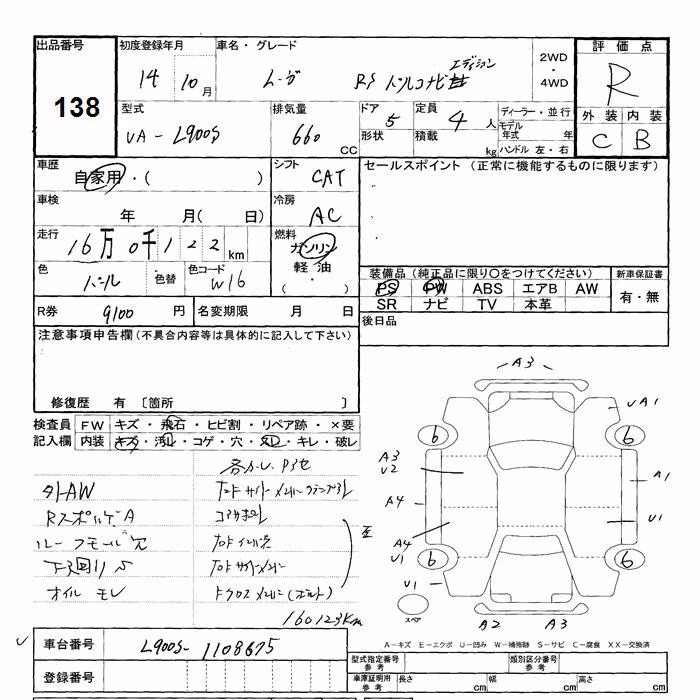 出品番号 138
初度登録年月 14 10月
車名・グレード ムーヴ RS パールコナビ エディション
2WD・4WD
評価点 R
外装 内装
C B
型式 UA-L900S
排気量 660 CC
ドア 5 形状
定員 4人 積載 kg
ディーラー・並行
モデル年式 年
ハンドル 左・右
車歴 自家用・( )
シフト CAT
セールスポイント (正常に機能するものに限ります)
車検 年 月( 日)
冷房 AC
走行 16万0千122 km
燃料 ガソリン 軽油 ( )
色 パール 色替 色コード W16
装備品 (純正品に限り〇をつけてください)
新車保証書
PS PW ABS エアB AW
SR ナビ TV 本革
有・無
R券 9100 円 名変期限 月 日
後日品
注意事項申告欄 (不具合内容等は具体的に記入して下さい)
修復歴 有 〔箇所 〕
検査員 FW キズ・飛石・ヒビ割・リペア跡・×要
記入欄 内装 キズ・汚レ・コゲ・穴・スレ・キレ・破レ
外AW
Rスポイルゲ A
ルーフモール穴
下回りS
オイル モレ
各カ.U.Pヨセ
コアサポート
160123km
A3
UA1
6 6
A3
U2
A1
A4
U1
A4
U1
6 6
U1
スペア
A2 A3
A-キズ E-エクボ U-凹み W-補修跡 S-サビ C-腐食 XX-交換済
車台番号 L900S-1108675
型式指定番号 参考 類別区分番号 参考
登録番号
車庫証明用 参考 長さ cm 幅 cm 高さ cm